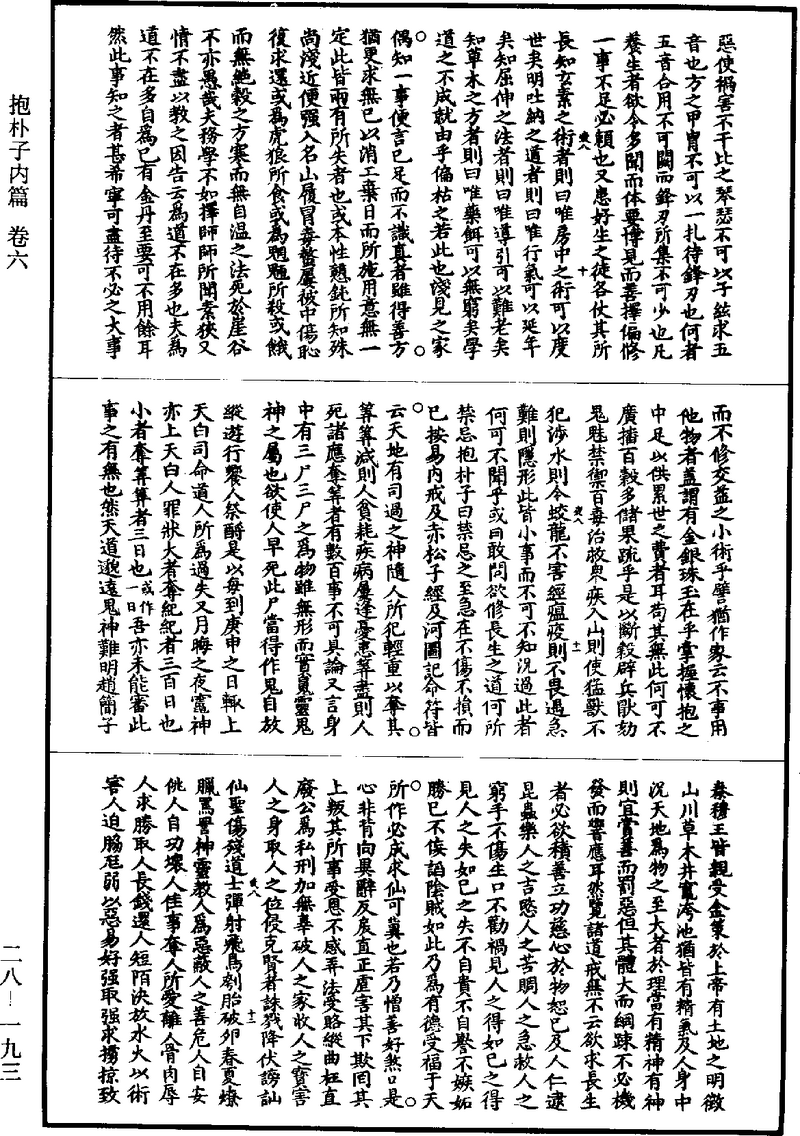 抱朴子内篇 卷六
二八—一九三
惡使禍害不干比之琴瑟不可以孑絃求五
音也方之甲冑不可以一扎待鋒刃也何者
五音合用不可闕而鋒刃所集不可少也凡
養生者欲令多聞而體要博見而善擇偏修
一事不足必頼也又患好生之徒各仗其所
長知玄素之術者則曰唯房中之術可以度
世矣明吐納之道者則曰唯行氣可以延年
矣知屈伸之法者則曰唯導引可以難老矣
知草木之方者則曰唯藥餌可以無窮矣學
道之不成就由乎偏枯之若此也淺見之家
偶知一事便言已足而不識真者雖得善方
猶更求無已以消工棄日而所施用意無一
定此皆兩有所失者也或本性戇鈍所知殊
尚淺近便强入名山履冒毒螫屢被中傷恥
復求還或爲虎狼所食或爲魍魎所殺或餓
而無絶穀之方寒而無自温之法死於崖谷
不亦愚哉夫務學不如擇師師所聞素狹又
情不盡以教之因告云爲道不在多也夫爲
道不在多自爲已有金丹至要可不用餘耳
然此事知之者甚希寧可盡待不必之大事
而不修交益之小術乎譬猶作家云不事用
他物者蓋謂有金銀珠玉在乎掌握懷抱之
中足以供累世之費者耳苟其無此何可不
廣播百穀多儲果疏乎是以斷穀辟兵猒劾
鬼魅禁禦百毒治救衆疾入山則使猛獸不
犯涉水則令蛟龍不害經瘟疫則不畏遇急
難則隱形此皆小事而不可不知況過此者
何可不聞乎或曰敢問欲修長生之道何所
禁忌抱朴子曰禁忌之至急在不傷不損而
已按易内戒及赤松子經及河圖記命符皆
云天地有司過之神隨人所犯輕重以奪其
筭筭減則人貧耗疾病屢逢憂患筭盡則人
死諸應奪筭者有數百事不可具論又言身
中有三尸三尸之爲物雖無形而實䰟靈鬼
神之屬也欲使人早死此尸當得作鬼自放
縱遊行饗人祭酹是以每到庚申之日輙上
天白司命道人所爲過失又月晦之夜竈神
亦上天白人罪狀大者奪紀紀者三百日也
小者奪筭筭者三日也或作一日吾亦未能審此
事之有無也然天道邈遠鬼神難明趙簡子
秦穆王皆親受金策於上帝有土地之明徵
山川草木井竈洿池猶皆有精氣及人身中
況天地爲物之至大者於理當有精神有神
則宜賞善而罰惡但其體大而網疎不必機
發而響應耳然覽諸道戒無不云欲求長生
者必欲積善立功慈心於物恕已及人仁逮
昆蟲樂人之吉愍人之苦賙人之急救人之
窮手不傷生口不勸禍見人之得如已之得
見人之失如已之失不自貴不自譽不嫉妬
勝已不佞謟陰賊如此乃爲有德受福于天
所作必成求仙可冀也若乃憎善好煞口是
心非背向異辭反戾直正虐害其下欺罔其
上叛其所事受恩不感弄法受賂縱曲枉直
廢公爲私刑加無辜破人之家收人之寶害
人之身取人之位侵克賢者誅戮降伏謗訕
仙聖傷殘道士彈射飛鳥刳胎破卵春夏燎
臘罵詈神靈教人爲惡蔽人之善危人自安
佻人自功壞人佳事奪人所愛離人骨肉辱
人求勝取人長錢還人短陌決放水火以術
害人迫脇尫弱以惡易好强取强求擄掠致